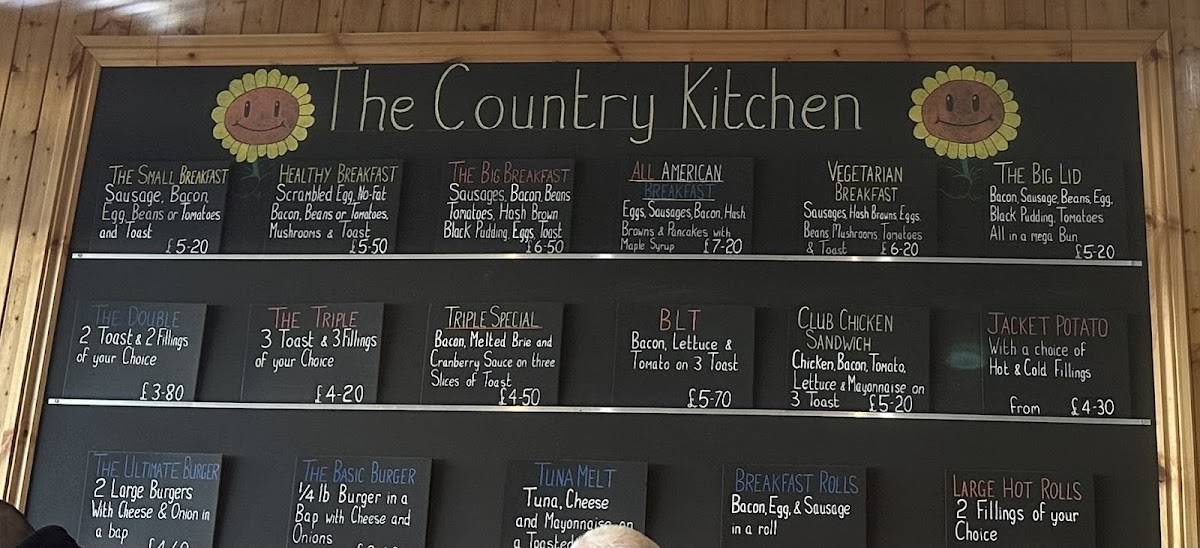 The Country Kitchen
THE SMALL BREAKFAST
Sausage, Bacon
Egg, Beans or Tomatoes
and Toast
£5-20
HEALTHY BREAKFAST
Scrambled Egg, No-Fat
Bacon, Beans or Tomatoes,
Mushrooms & Toast
£5-50
THE BIG BREAKFAST
Sausages, Bacon, Beans
Tomatoes, Hash Brown
Black Pudding, Eggs, Toast
£6-50
ALL AMERICAN
BREAKFAST
Eggs, Sausages, Bacon, Hash
Browns & Pancakes with
Maple Syrup £7-20
VEGETARIAN
BREAKFAST
Sausages, Hash Browns, Eggs,
Beans Mushrooms, Tomatoes
& Toast £6-20
THE BIG LID
Bacon, Sausage, Beans, Egg,
Black Pudding, Tomatoes
All in a mega Bun
£5-20
THE DOUBLE
2 Toast & 2 Fillings
of your Choice
£3-80
THE TRIPLE
3 Toast & 3 Fillings
of your Choice
£4-20
TRIPLE SPECIAL
Bacon, Melted Brie and
Cranberry Sauce on three
Slices of Toast
£4-50
BLT
Bacon, Lettuce &
Tomato on 3 Toast
£5-70
CLUB CHICKEN
SANDWICH
Chicken, Bacon, Tomato,
Lettuce & Mayonnaise on
3 Toast £5-20
JACKET POTATO
With a choice of
Hot & Cold Fillings
From £4-30
THE ULTIMATE BURGER
2 Large Burgers
With Cheese & Onion in
a bap
THE BASIC BURGER
1/4 lb Burger in a
Bap with Cheese and
Onions
TUNA MELT
Tuna, Cheese
and Mayonnaise on
a Toasted
BREAKFAST ROLLS
Bacon, Egg, & Sausage
in a roll
LARGE HOT ROLLS
2 Fillings of your
Choice